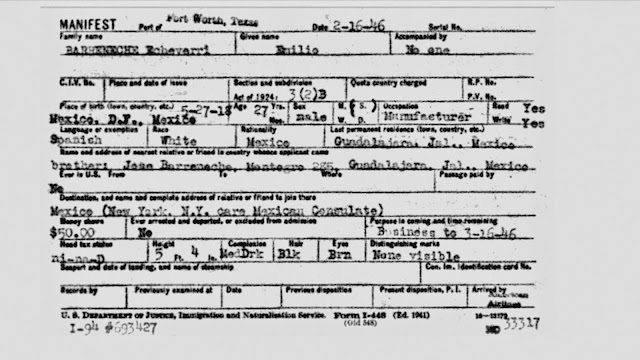 MANIFEST Port of Fort Worth, Texas Date 2-16-46 Serial No.
Family name Given name Accompanied by
BARRENECHE Echevarri Emilio No one
C.I.V. No. Place and date of issue Section and subdivision Quota country charged R.P. No.
Act of 1924: 3(2)B P.V. No.
Place of birth (town, country, etc.) 5-27-18 Age 27 Yrs. Sex M. S. Occupation Read Yes
Mexico, D.F., Mexico Mos. male W. D. Manufacturer Write Yes
Language or exemption Race Nationality Last permanent residence (town, country, etc.)
Spanish White Mexico Guadalajara, Jal., Mexico
Name and address of nearest relative or friend in country whence applicant came
brother: Jose Barreneche, Montegro 285, Guadalajara, Jal., Mexico
Ever in U.S. From Where Passage paid by
No
Destination, and name and complete address of relative or friend to join there
Mexico (New York, N.Y. care Mexican Consulate)
Money shown Ever arrested and deported, or excluded from admission Purpose in coming and time remaining
$50.00 No Business to 3-16-46
Head tax status Height Complexion Hair Eyes Distinguishing marks
ni-na-D 5 Ft. 4 In. MedDrk Blk Brn None visible
Seaport and date of landing, and name of steamship Con. Im. Identification card No.
Records by Previously examined at Date Previous disposition Present disposition, P.I. Arrived by
American
Airlines
U. S. DEPARTMENT OF JUSTICE, Immigration and Naturalization Service. Form I-448 (Ed. 1941)
I-94 #693427 (Old 548) 33317